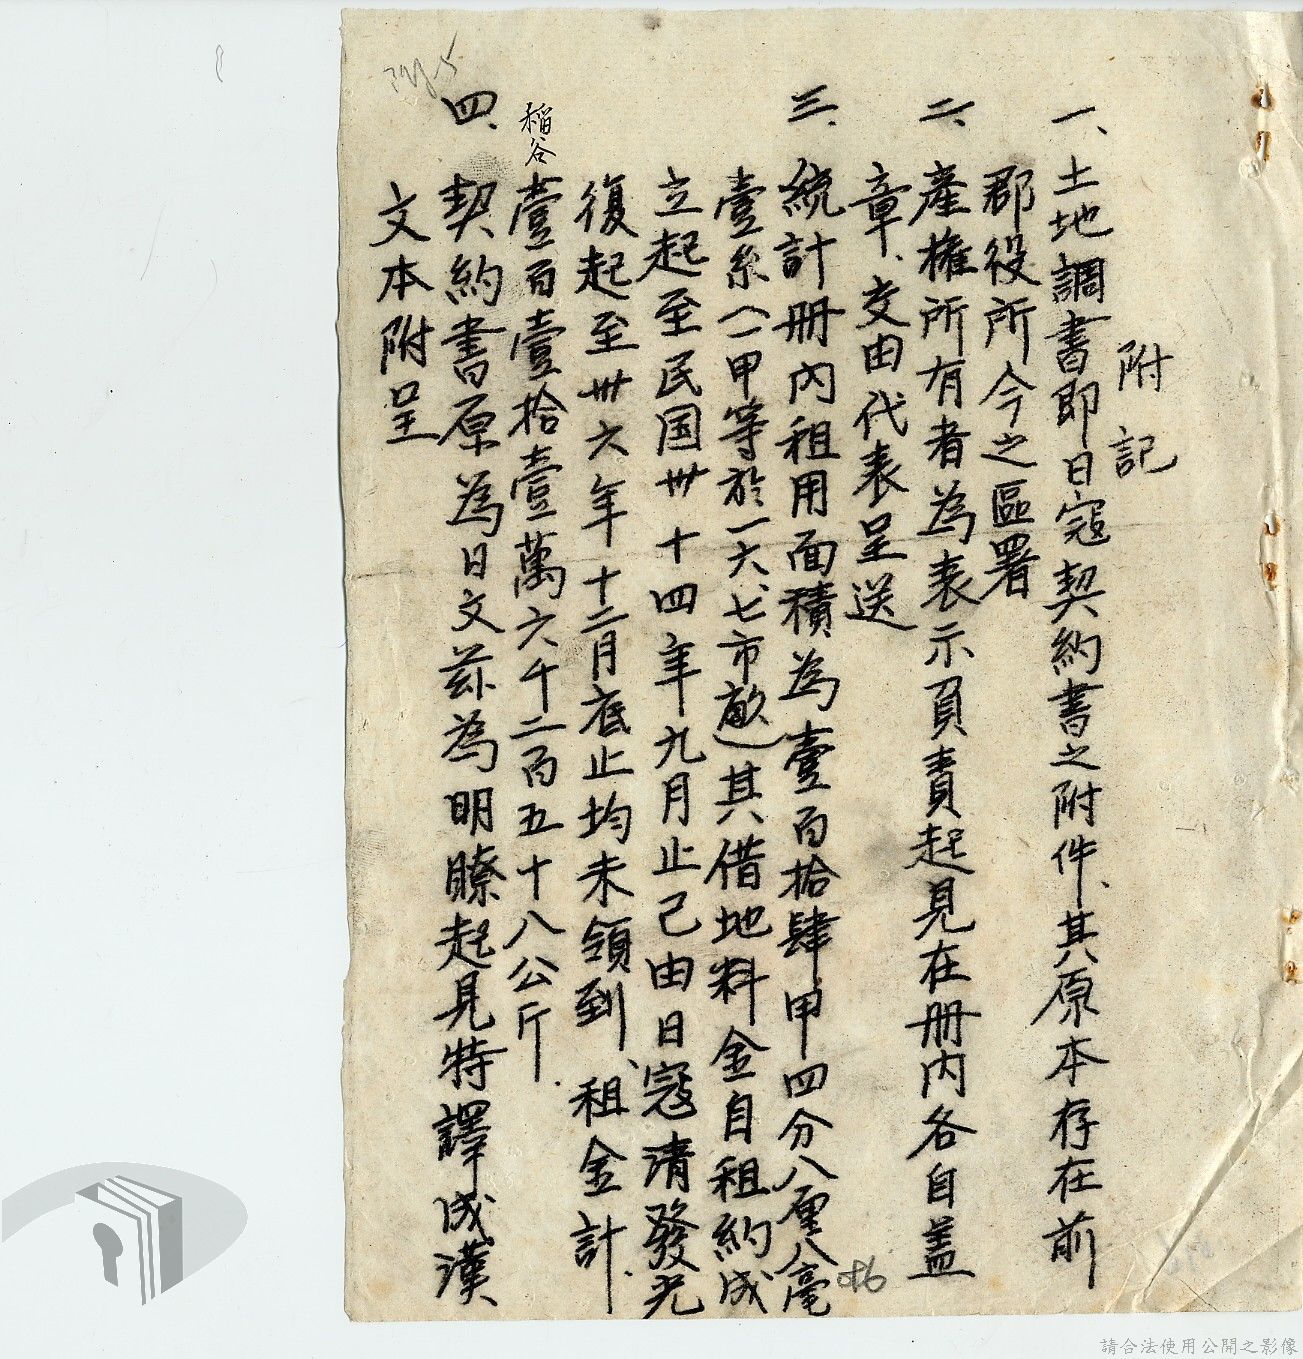 附記
一、土地調書即日寇契約書之附件、其原本存在前
郡役所今之區署
二、產權所有者為表示負責起見在冊內各自蓋
章、交由代表呈送
三、統計冊內租用面積為壹百拾肆甲四分八厘八毫
壹糸(一甲等於一六、七市畝)其借地料金自租約成
立起至民国卅十四年九月止已由日寇清發光
復起至卅六年十二月底止均未領到、租金計
稻谷
壹百壹拾壹萬六千二百五十八公斤.
四、契約書原為日文茲為明瞭起見特譯成漢
文本附呈
086
請合法使用公開之影像